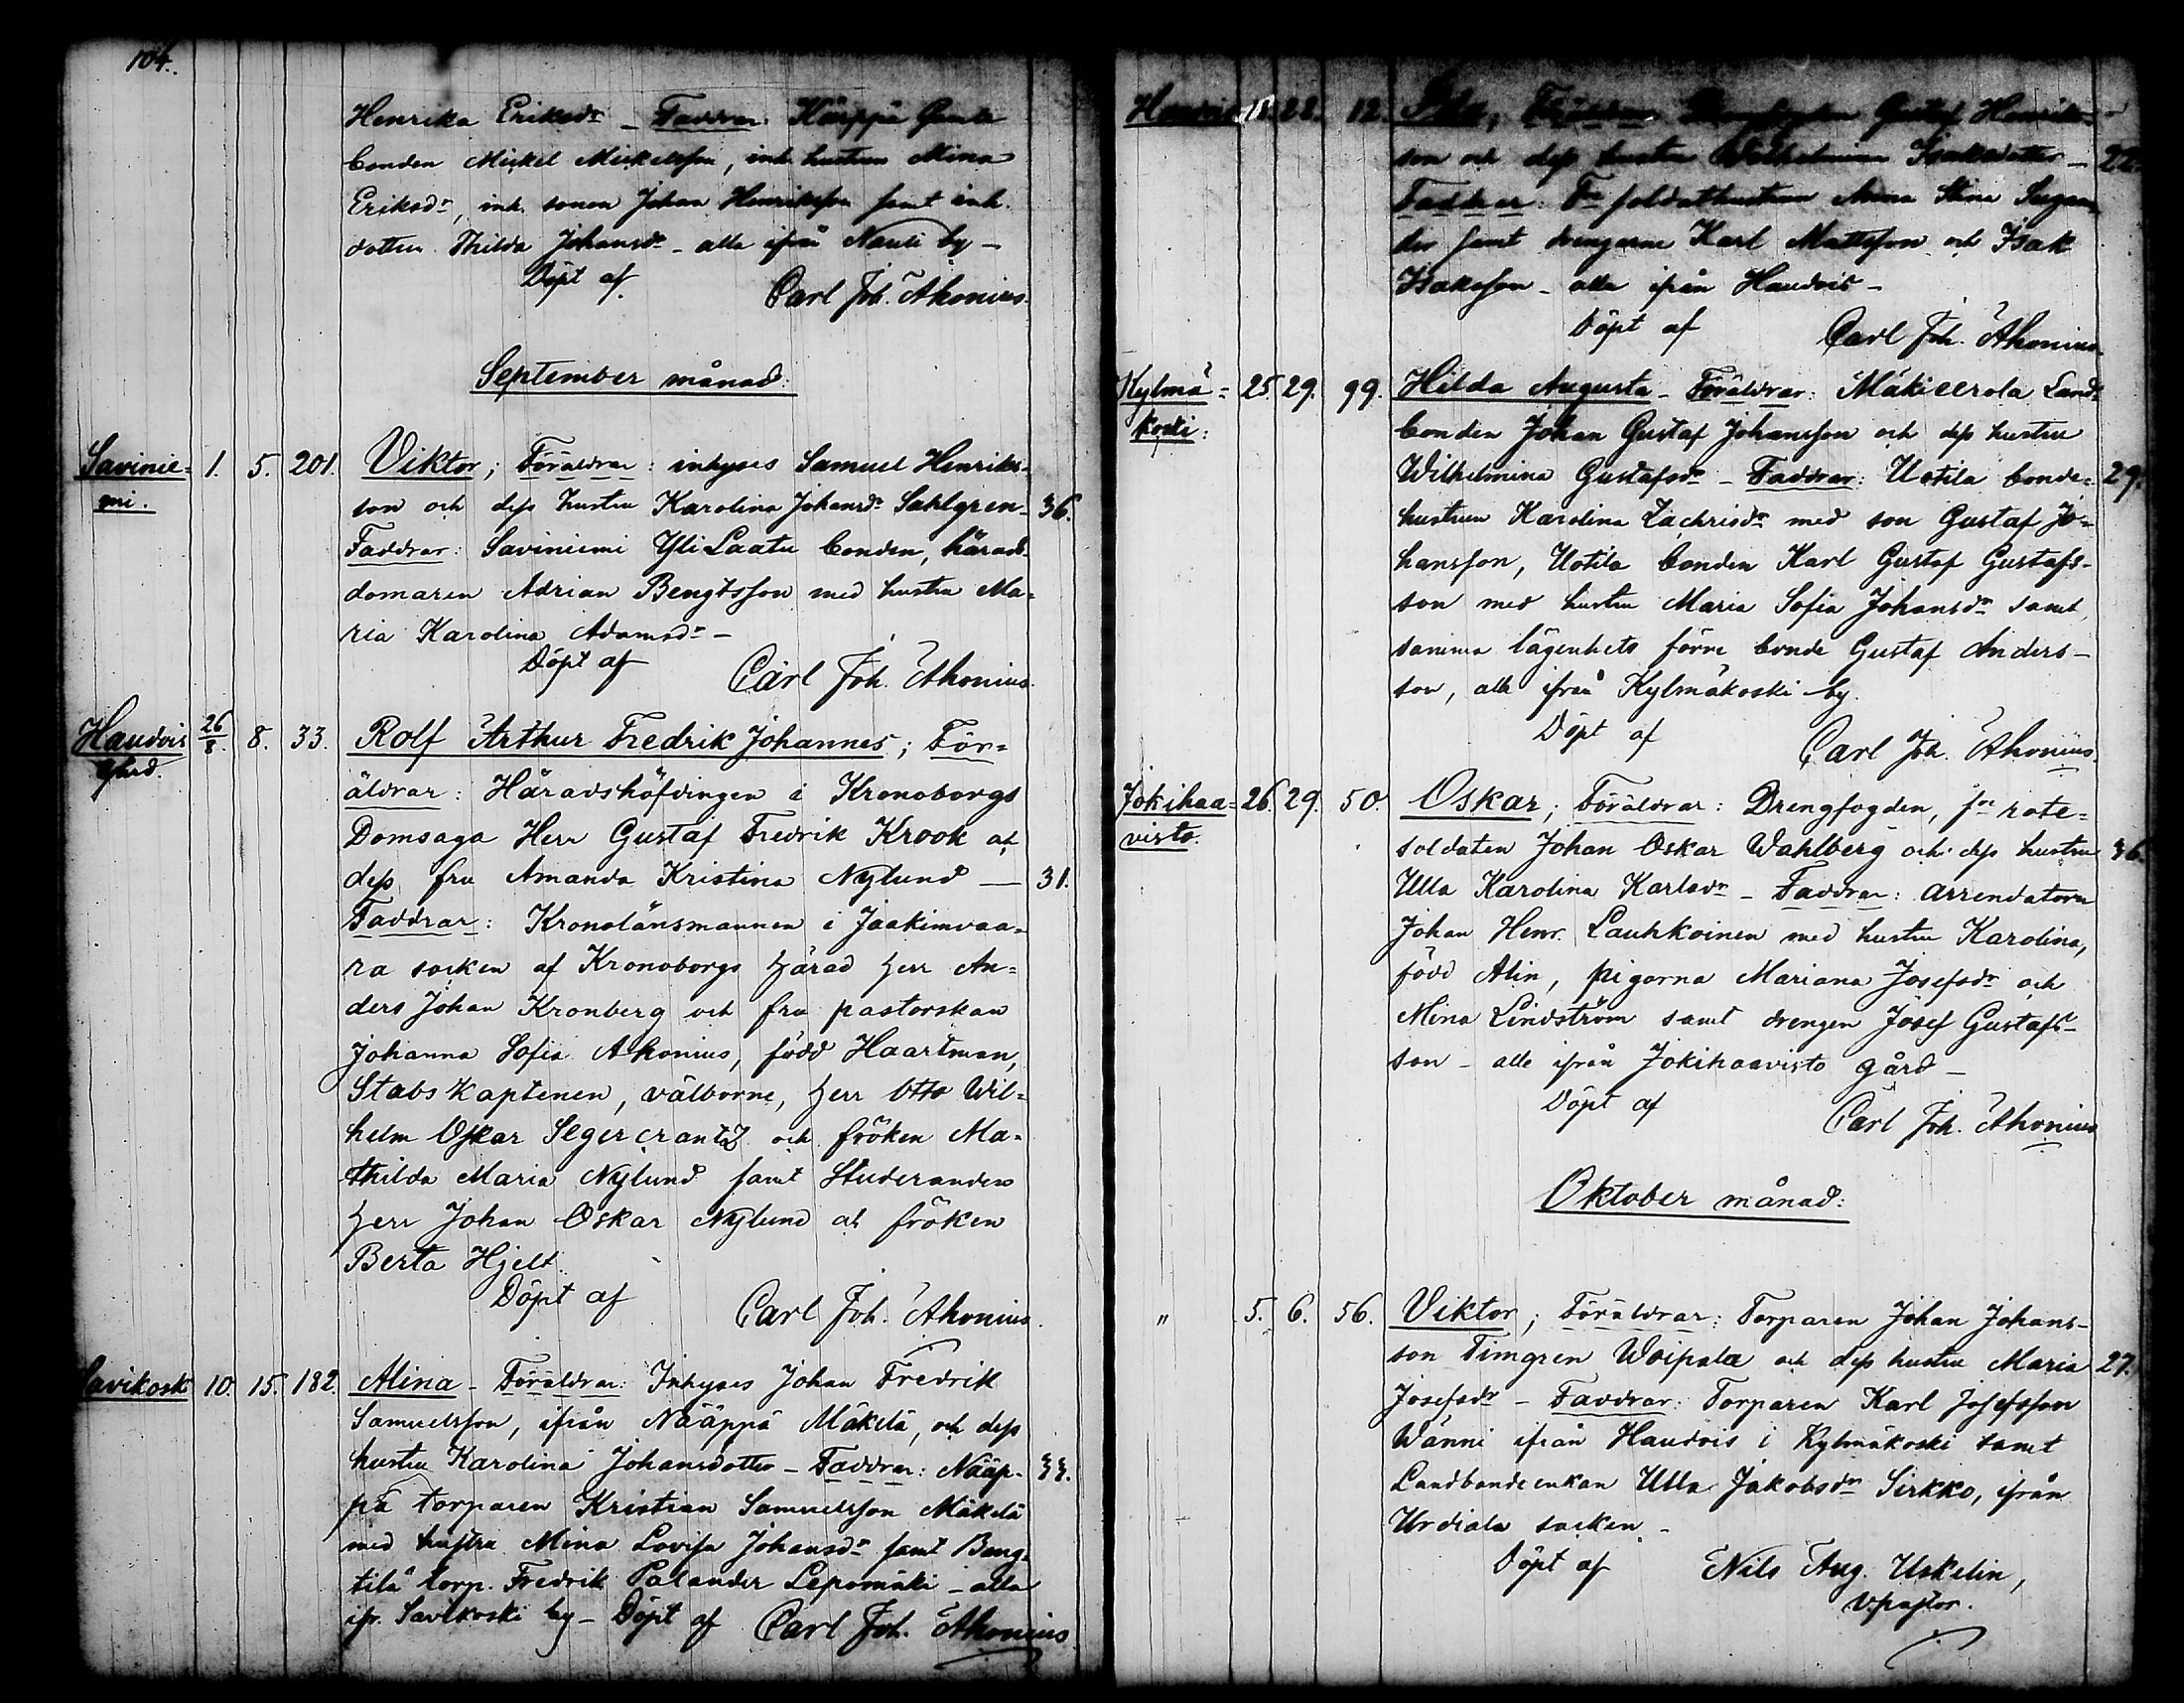 104.
Henrika Eriksdr _ Faddrar: Käppä Gamle
bonden Mickel Mickelsson, inh. hustrun Mina
Eriksdr, inh. sonen Johan Henriksson samt inh.
dottren Thilda Johansdr _ alla ifrån Nauli by _
Döpt af
Carl Joh. Ahonius.
September månad:
Savinie= 1. 5. 201. Viktor; Föräldrar: inhyses Samuel Henriks-
mi. son och dess hustru Karolina Johansdr Sahlgren _ 36.
Faddrar: Saviniemi Yli Laatu bonden, härads-
domaren Adrian Bengtsson med hustru Ma=
ria Karolina Adamsdr _
Döpt af
Carl Joh. Ahonius.
Haudois 26/8. 8. 33. Rolf Arthur Fredrik Johannes; För=
gård.
äldrar: Häradshöfdingen i Kronoborgs
Domsaga Herr Gustaf Fredrik Krook och
dess fru Amanda Kristina Nylund — 31.
Faddrar: Kronolänsmannen i Jaakimvaa=
ra socken af Kronoborgs härad herr An=
ders Johan Kronberg och fru pastorskan
Johanna Sofia Ahonius, född Haartman,
Stabskaptenen, välborne, herr Otto Wil=
helm Oskar Segercrantz och fröken Ma=
thilda Maria Nylund samt Studeranden
herr Johan Oskar Nylund och fröken
Berta Hjelt.
Döpt af
Carl Joh. Ahonius.
Savikosk 10. 15. 182. Mina _ Föräldrar: Inhyses Johan Fredrik
Samuelsson, ifrån Nääppä Mäkelä, och dess
hustru Karolina Johansdotter _ Faddrar: Nääp- 33.
pä torparen Kristian Samuelsson Mäkelä
med hustru Mina Lovisa Johansdr samt Beng-
tilä torp. Fredrik Palander Lepomäki _ alla
ifr. Savikoski by _ Döpt af Carl Joh. Ahonius
Haudois 18. 22. 12. Ida; Föräldrar: Gustaf Henriks-
son och dess hustru Wilhelmina Isaksdotter _ 22.
Faddrar: Fr soldathustrun Anna Stina
samt drengarne Karl Mattsson och Isak
Isaksson _ alla ifrån Haudois _
Döpt af
Carl Joh. Ahonius
Kylmä= 25. 29. 99. Hilda Augusta _ Föräldrar: Mäkieerola Land=
koski: bonden Johan Gustaf Johansson och dess hustru
Wilhelmina Gustafsdr _ Faddrar: Uotila bonde= 29.
hustrun Karolina Zachrisdr med son Gustaf Jo=
hansson, Uotila bonden Karl Gustaf Gustafs-
son med hustru Maria Sofia Johansdr samt
samma lägenhets förre bonde Gustaf Anders-
son, alla ifrån Kylmäkoski by.
Döpt af
Carl Joh. Ahonius.
Jokihaa= 26. 29. 50. Oskar; Föräldrar: Drengfogden, fr rote=
visto. soldaten Johan Oskar Wahlberg och dess hustru 36.
Ulla Karolina Karlsdr _ Faddrar: Arrendatorn
Johan Henr. Lauhkoinen med hustru Karolina,
född Alin, pigorna Mariana Josefsdr och
Mina Lindström samt drengen Josef Gustafs-
son _ alla ifrån Jokihaavisto gård _
Döpt af
Carl Joh. Ahonius
Oktober månad:
" 5. 6. 56. Viktor; Föräldrar: Torparen Johan Johans-
son Timgren Woipala och dess hustru Maria 27.
Josefsdr _ Faddrar: Torparen Karl Josefsson
Wänni ifrån Haudois i Kylmäkoski samt
Landbondeenkan Ulla Jakobsdr Sirkko, ifrån
Urdiala socken _
Döpt af
Nils Aug. Uskelin,
v.pastor.